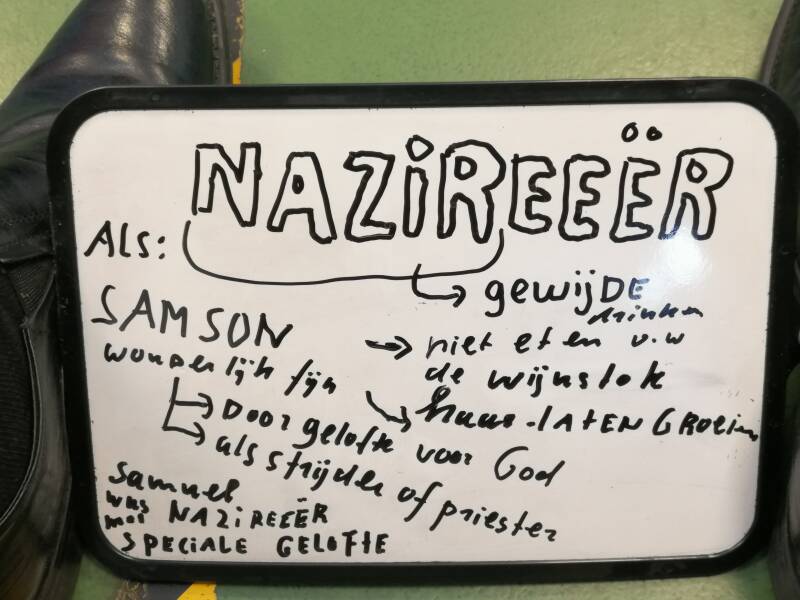 NAZiREEËR
ALS:
gewijDE
SAMSON
drinken
niet eten v.w
wonderlijk fijn
de wijnstok
haar-LATEN GROEien
Door gelofte voor God
als strijder of priester
Samuel
was NAZiREEËR
met
SPECiALE GELOFTE